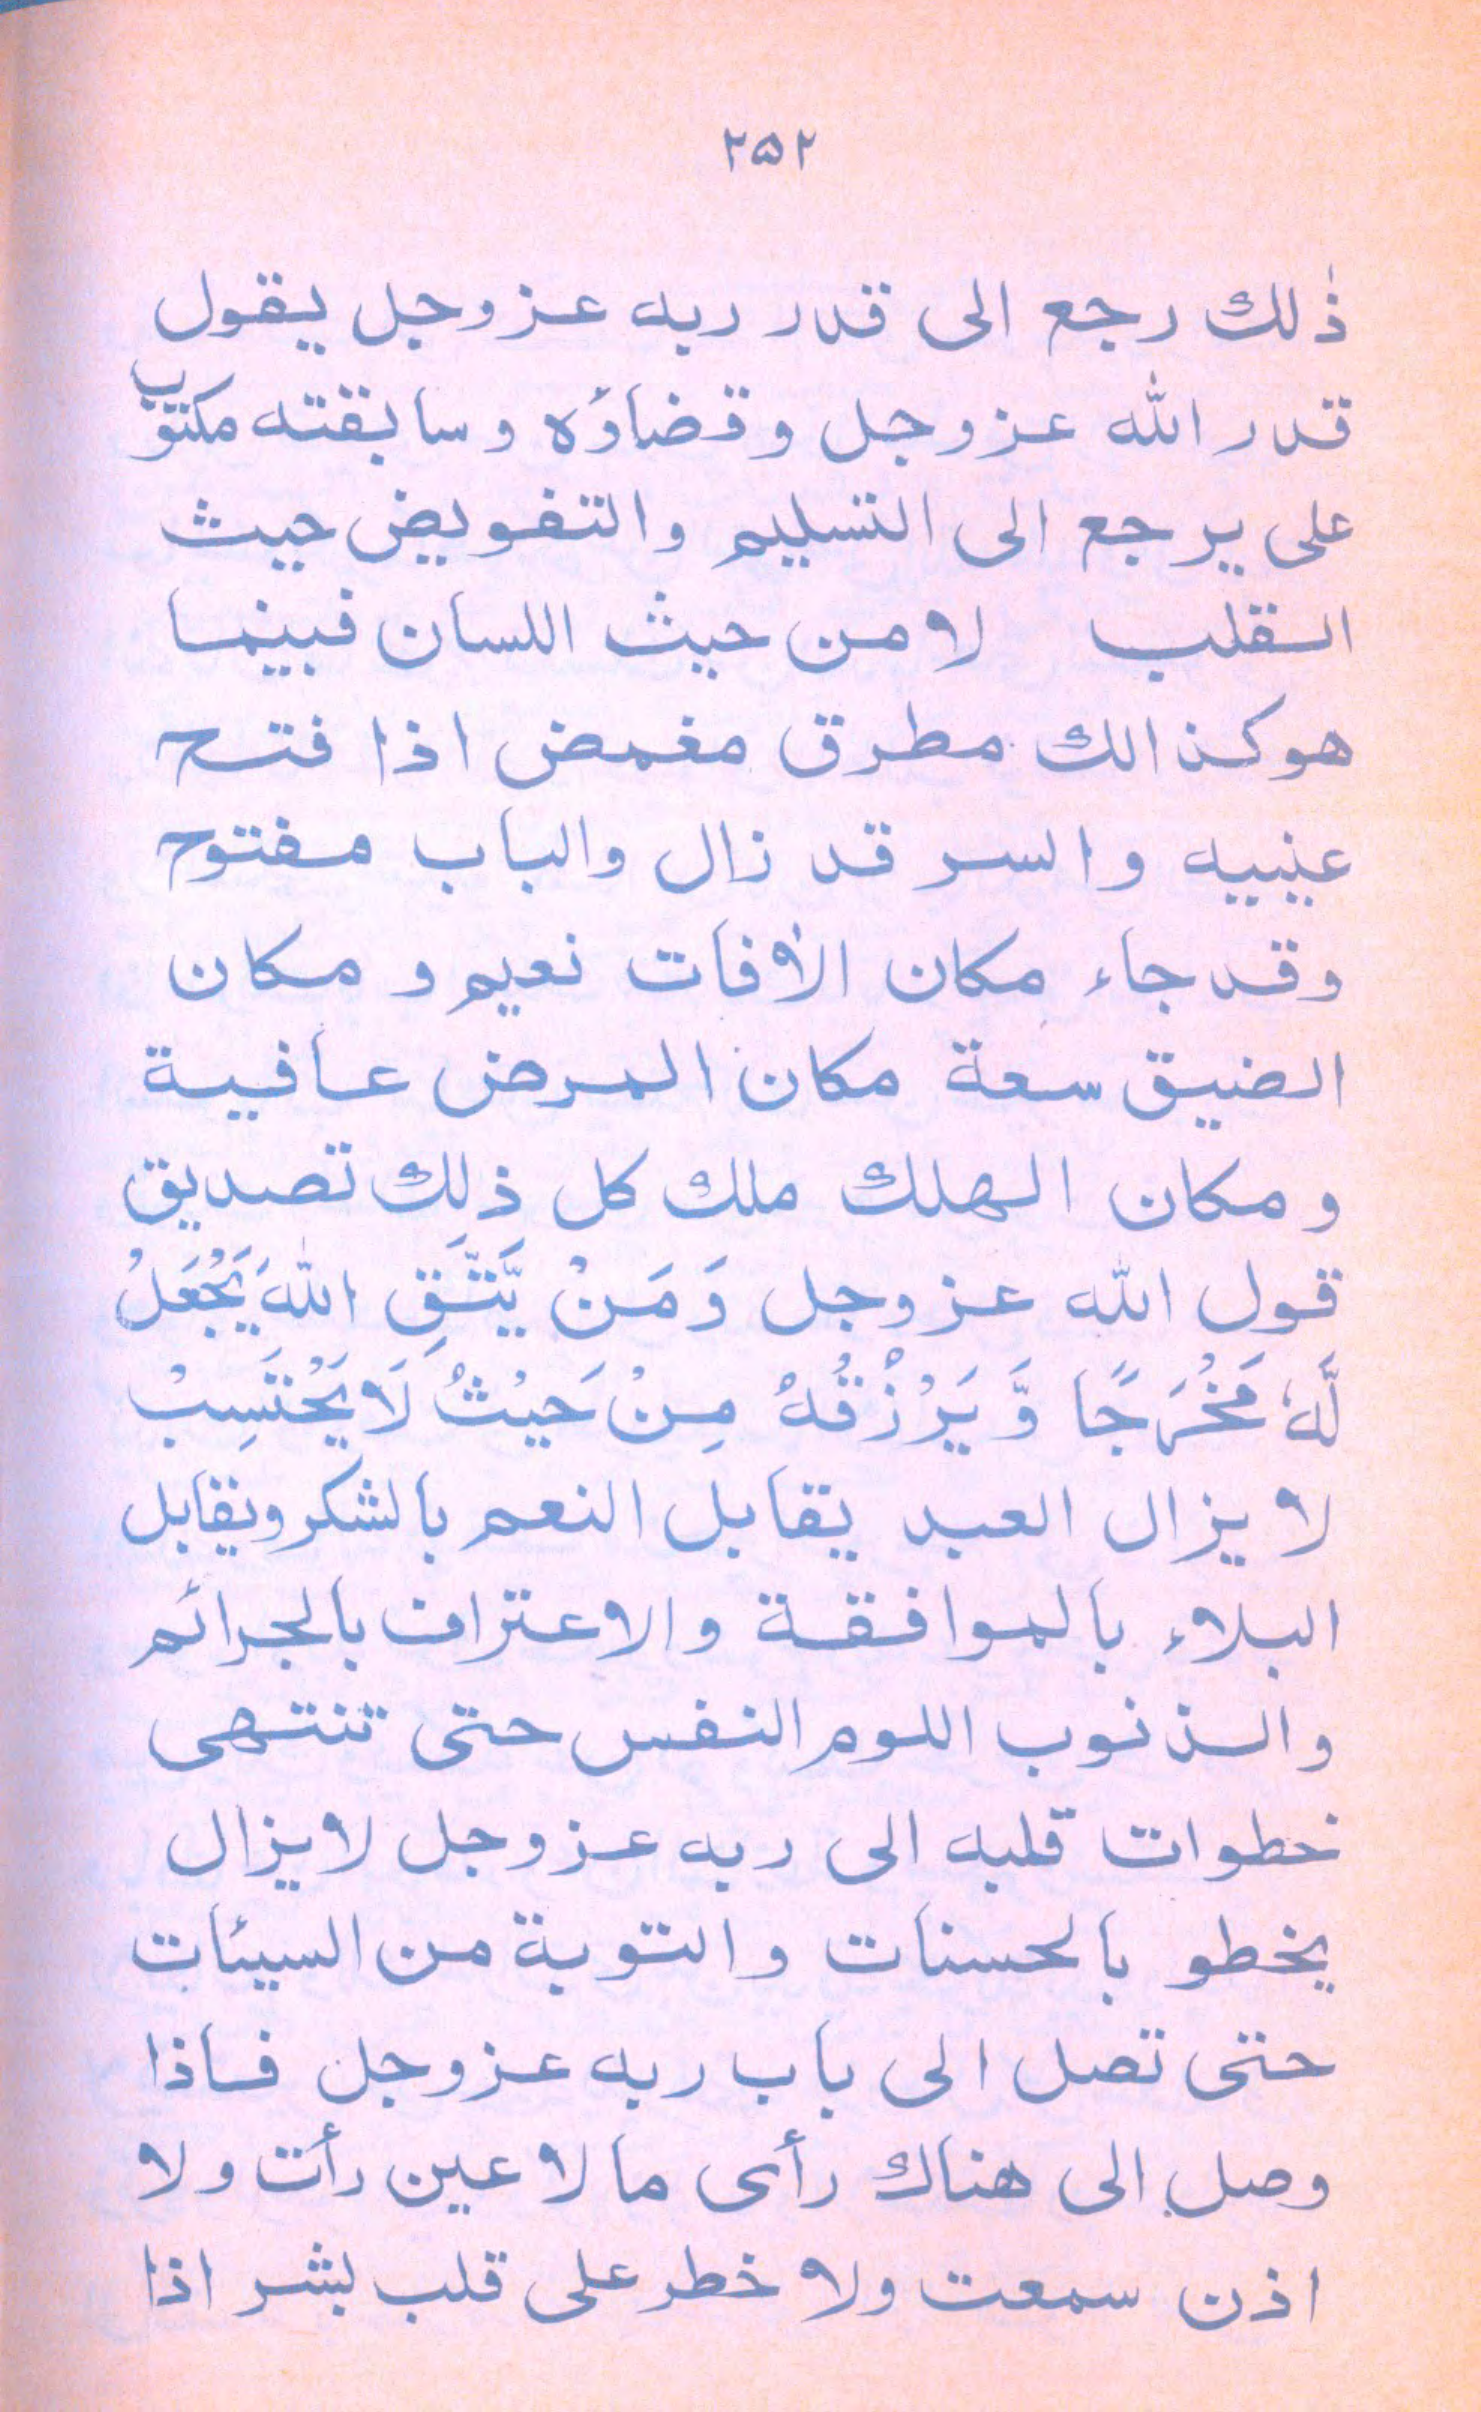 ۲۵۲
ذٰلك رجع الى قدر ربه عز وجل يقول
قدر الله عز وجل وقضاؤه وسابقته مكتوب
على يرجع الى التسليم والتفويض حيث
القلب لا من حيث اللسان فبينما
هو كذالك مطرق مغمض اذا فتح
عينيه والسر قد زال والباب مفتوح
وقد جاء مكان الأفات نعيم و مكان
الضيق سعة مكان المرض عافية
و مكان الهلك ملك كل ذلك تصديق
قول الله عز وجل وَ مَنْ يَّتَّقِ اللهَ يَجْعَلْ
لَّهٗ مَخْرَجًا وَّ يَرْزُقْهُ مِنْ حَيْثُ لَا يَحْتَسِبْ
لا يزال العبد يقابل النعم بالشكر ويقابل
البلاء بالموافقة والاعتراف بالجرائم
والذنوب اللوم النفس حتى تنتهى
خطوات قلبه الى ربه عز وجل لا يزال
يخطو بالحسنات والتوبة من السيئات
حتى تصل الى باب ربه عز وجل فاذا
وصل الى هناك رأى ما لا عين رأت ولا
اذن سمعت ولا خطر على قلب بشر اذا